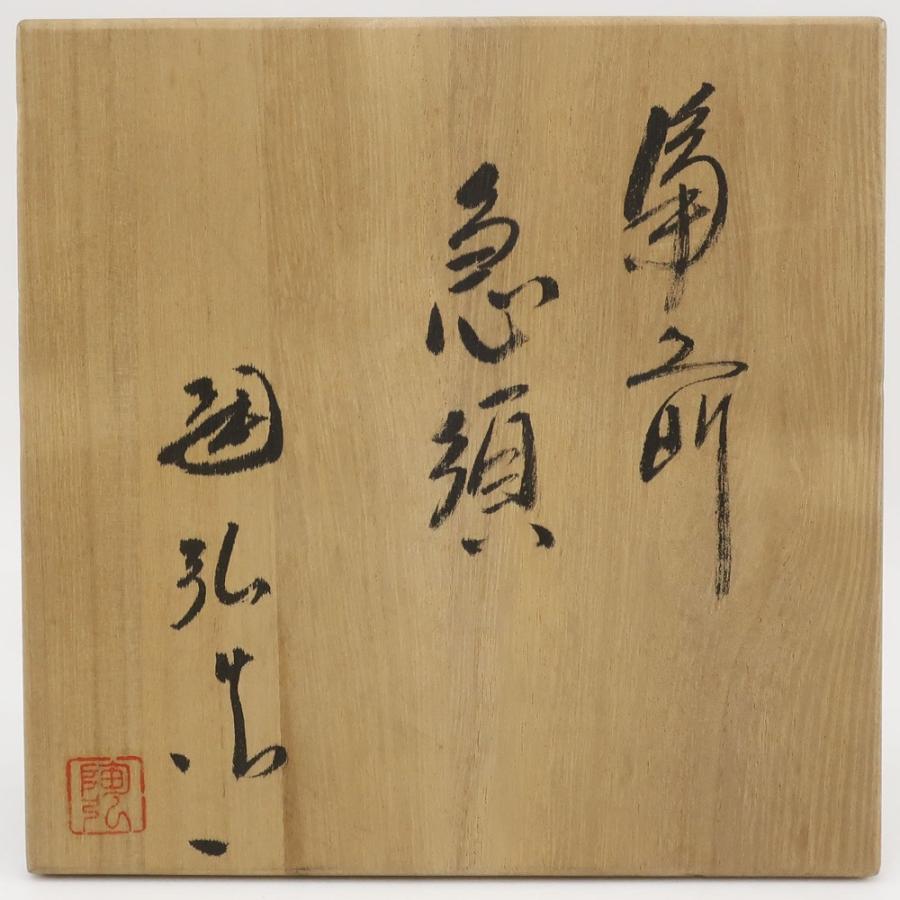 備前
急須
陶弘造
陶弘